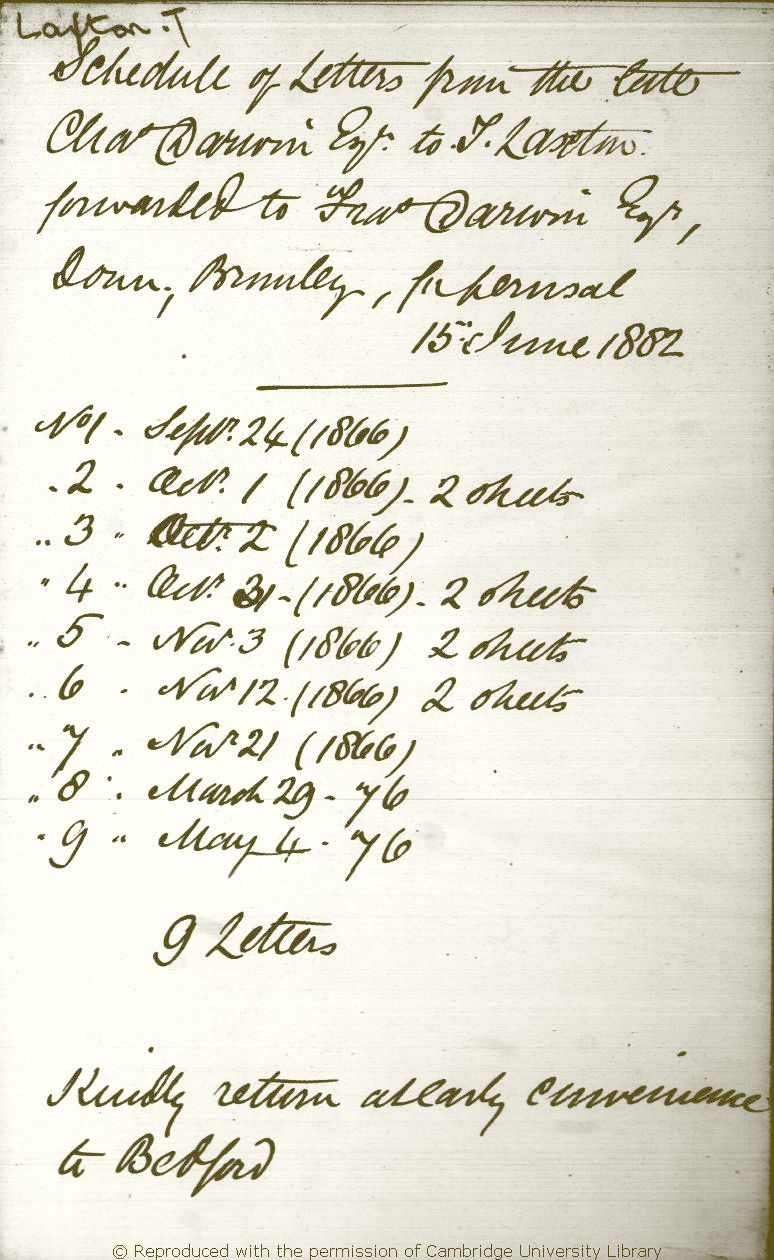 Laxton. T
Schedule of Letters from the late
Chas Darwin Esqr. to T. Laxton.
forwarded to Fras Darwin Esqr,
Down, Bromley, for perusal
15th June 1882
No 1 - Septr. 24 (1866)
" 2 " Octr. 1 (1866) - 2 sheets
" 3 " Octr. 2 (1866)
" 4 " Octr. 31 - (1866) - 2 sheets
" 5 " Novr. 3 (1866) 2 sheets
" 6 " Novr 12. (1866) 2 sheets
" 7 " Novr 21 (1866)
" 8 " March 29 - 76
" 9 " May 4 - 76
9 Letters
Kindly return at early convenience
to Bedford
© Reproduced with the permission of Cambridge University Library